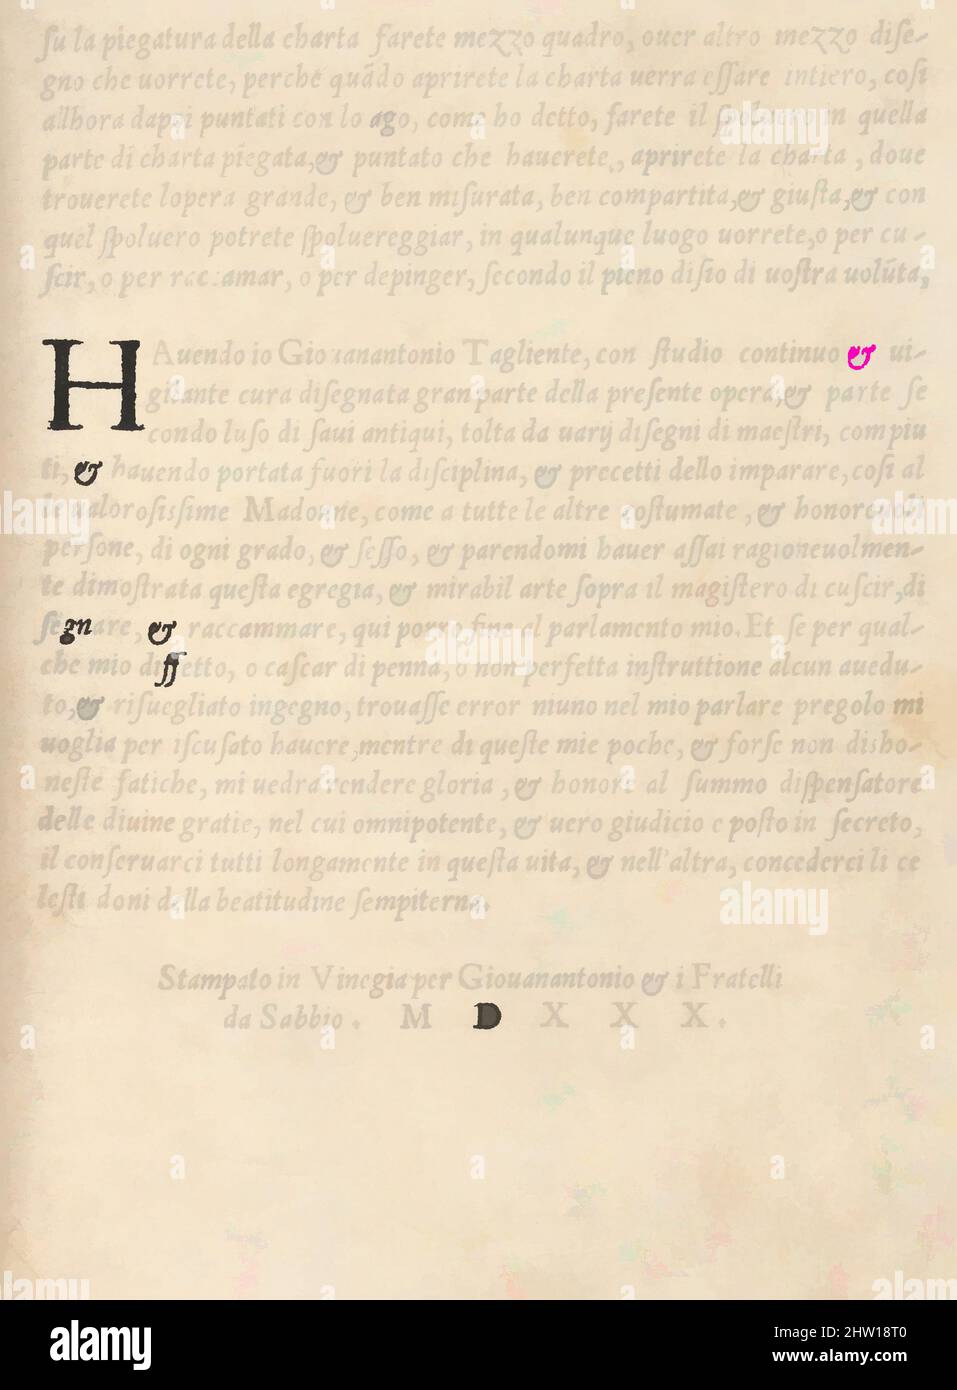 su la piegatura della charta farete mezzo quadro, ouer altro mezzo dise-
gno che uorrete, perche quãdo aprirete la charta uerra essare intiero, cosi
allhora dapoi puntati con lo ago, come ho detto, farete il spoluero in quella
parte di charta piegata, & puntato che hauerete, aprirete la charta, doue
trouerete lopera grande, & ben misurata, ben compartita, & giusta, & con
quel spoluero potrete spoluereggiar, in qualunque luogo uorrete, o per cu-
scir, o per raccamar, o per depinger, secondo il pieno disio di uostra uolũta,
HAuendo io Giouanantonio Tagliente, con studio continuo & ui-
gilante cura disegnata gran parte della presente opera, & parte se
condo luso di saui antiqui, tolta da uarij disegni di maestri, compiu
ti, & hauendo portata fuori la disciplina, & precetti dello imparare, cosi al
le ualorosissime Madonne, come a tutte le altre costumate, & honoreuoli
persone, di ogni grado, & sesso, & parendomi hauer assai ragioneuolmen-
te dimostrata questa egregia, & mirabil arte sopra il magistero di cuscir, di
segnare, & raccammare, qui porro fine al parlamento mio. Et se per qual-
che mio diffetto, o cascar di penna, o non perfetta instruttione alcun auedu-
to, & risuegliato ingegno, trouasse error niuno nel mio parlare pregolo mi
uoglia per iscusato hauere, mentre di queste mie poche, & forse non disho-
neste fatiche, mi uedra rendere gloria, & honore al summo dispensatore
delle diuine gratie, nel cui omnipotente, & uero giudicio e posto in secreto,
il conseruarci tutti longamente in questa uita, & nell'altra, concederci li ce
lesti doni della beatitudine sempiterna.
Stampato in Vinegia per Giouanantonio & i Fratelli
da Sabbio. M D X X X.
alamy
Image ID: 2HW18T0
www.alamy.com